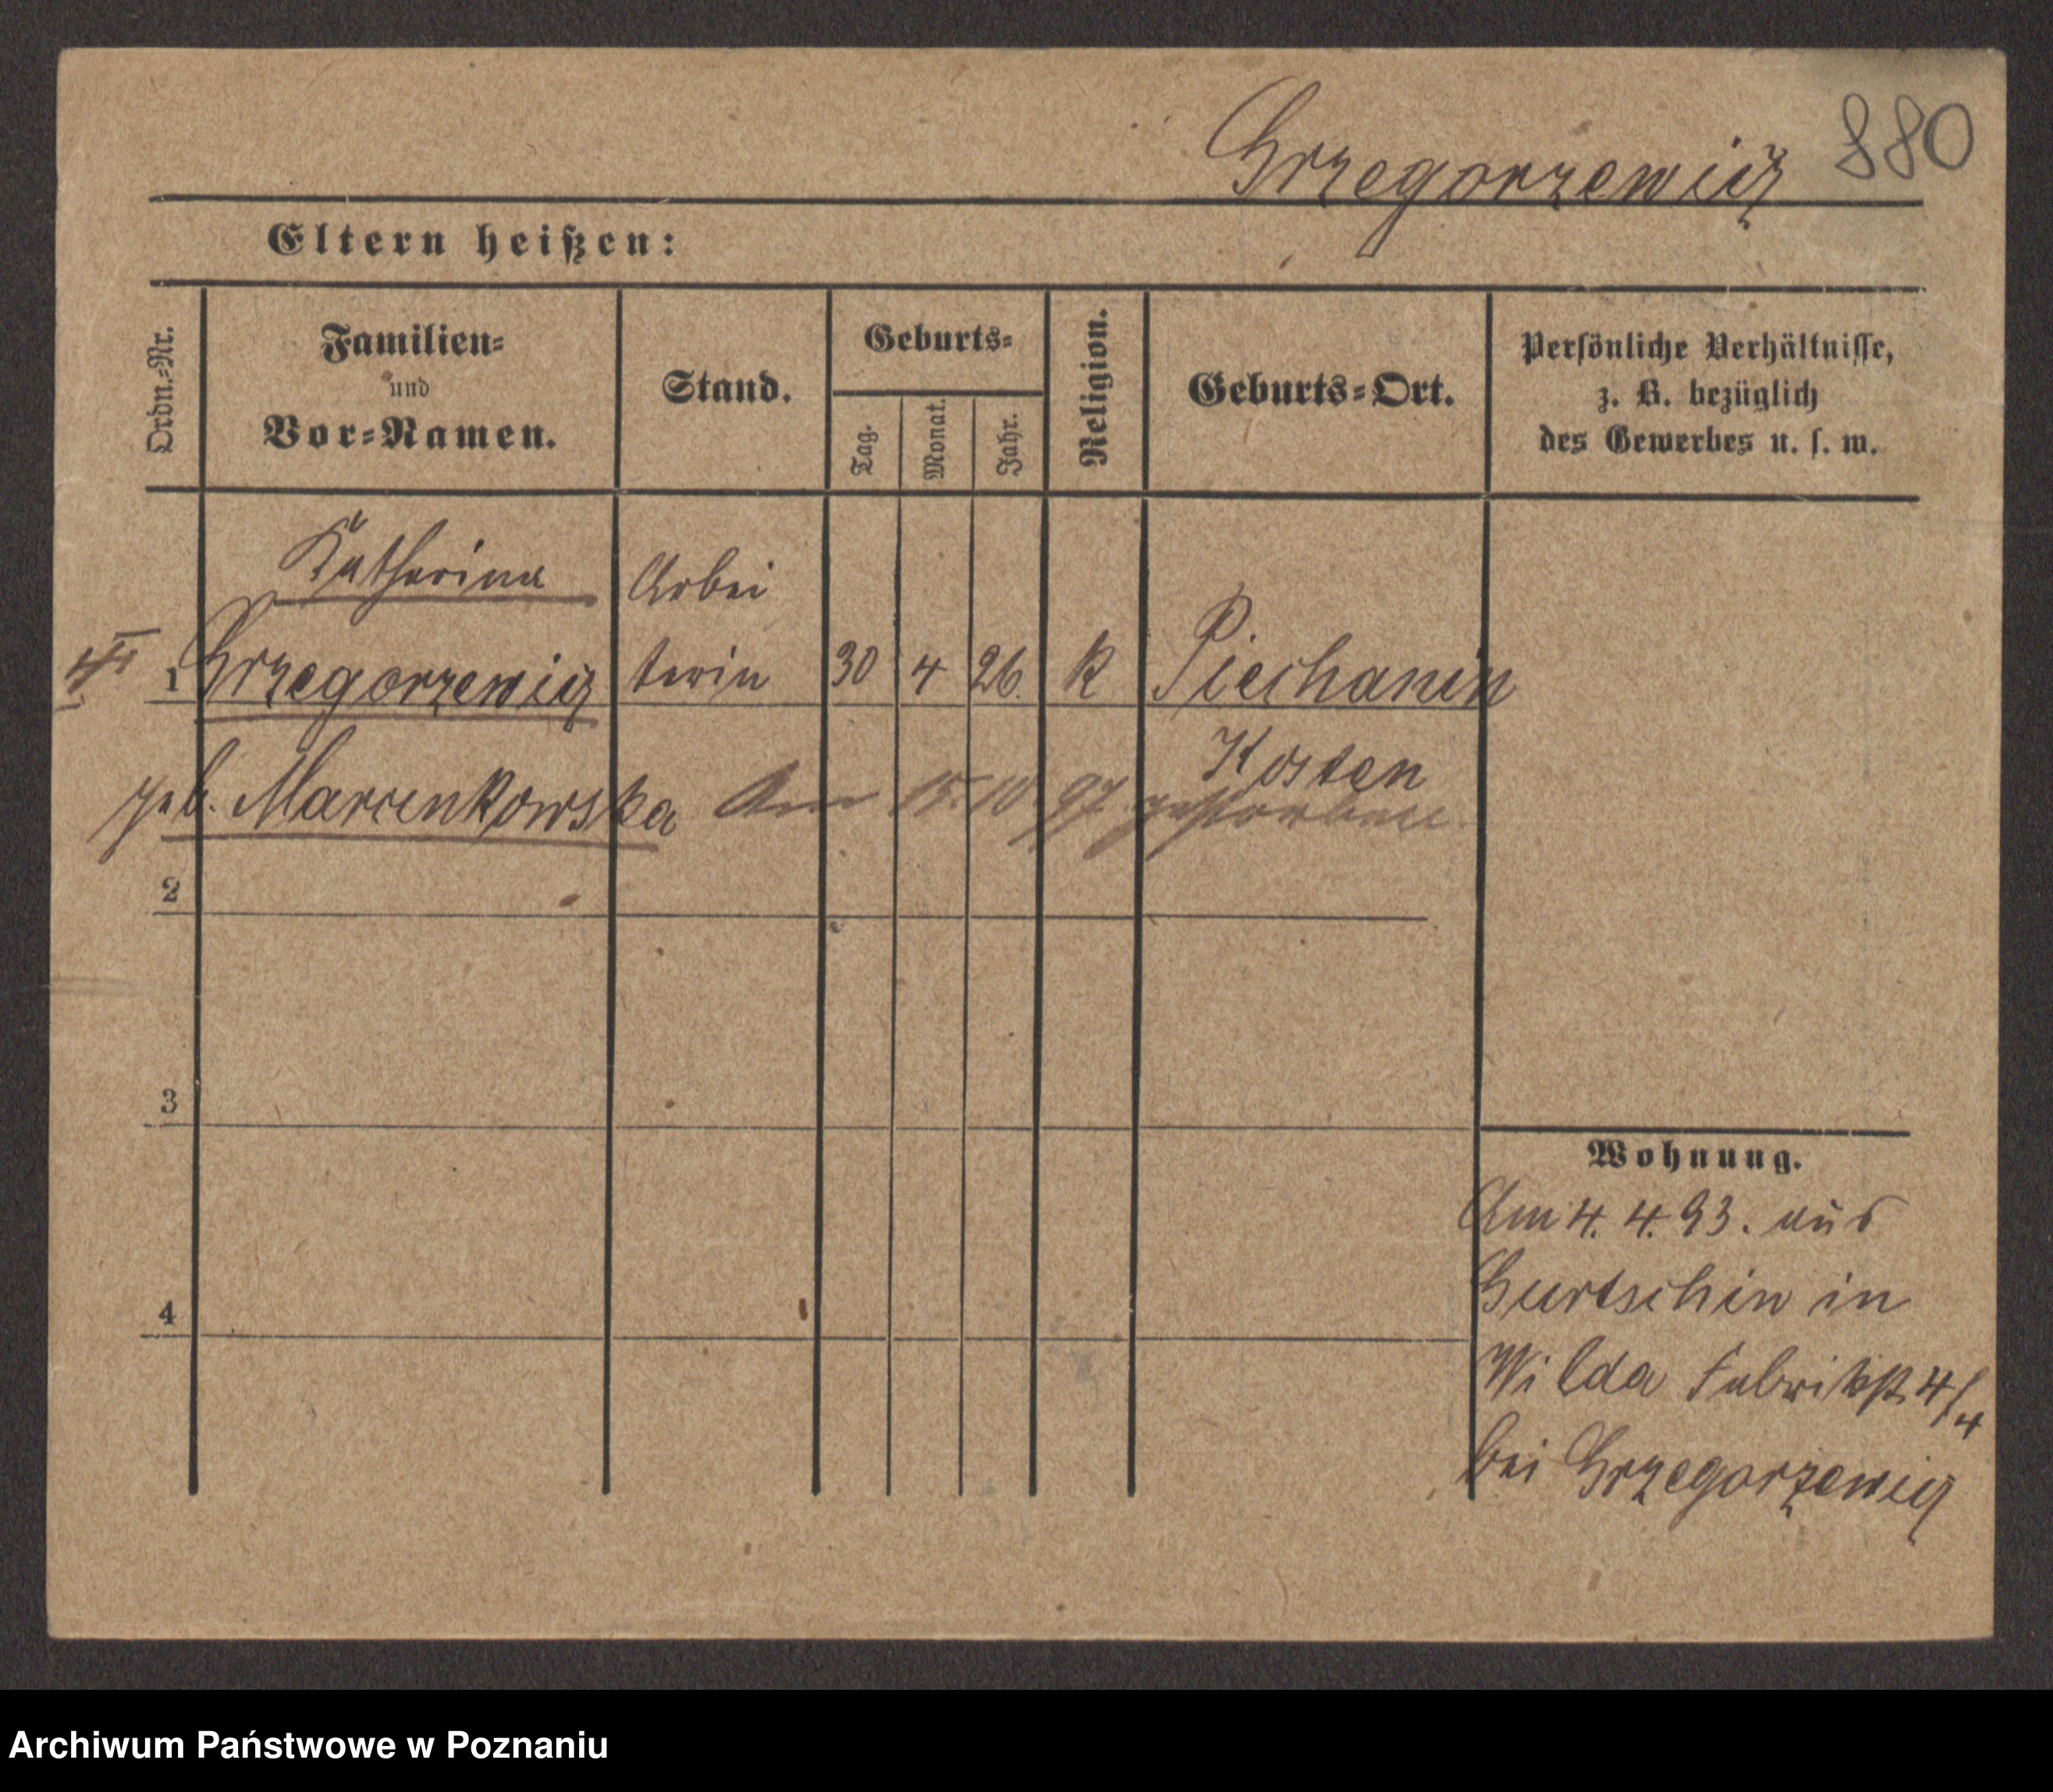 Grzegorzewicz 880
Eltern heißen:
Ordn.-Nr.
Familien- und Vor-Namen.
Stand.
Geburts-
Tag.
Monat.
Jahr.
Religion.
Geburts-Ort.
Persönliche Verhältnisse,
z. B. bezüglich
des Gewerbes u. s. w.
Katharina Arbei
1 Grzegorzewicz terin 30 4 26. K Piechanin
Kosten
geb. Marcenkowska Am 15. 10. 97 gestorben.
2
3
4
Wohnung.
Am 4. 4. 93. aus
Gurtschin in
Wilda Fabrikst. 4/4
bei Grzegorzewicz
Archiwum Państwowe w Poznaniu